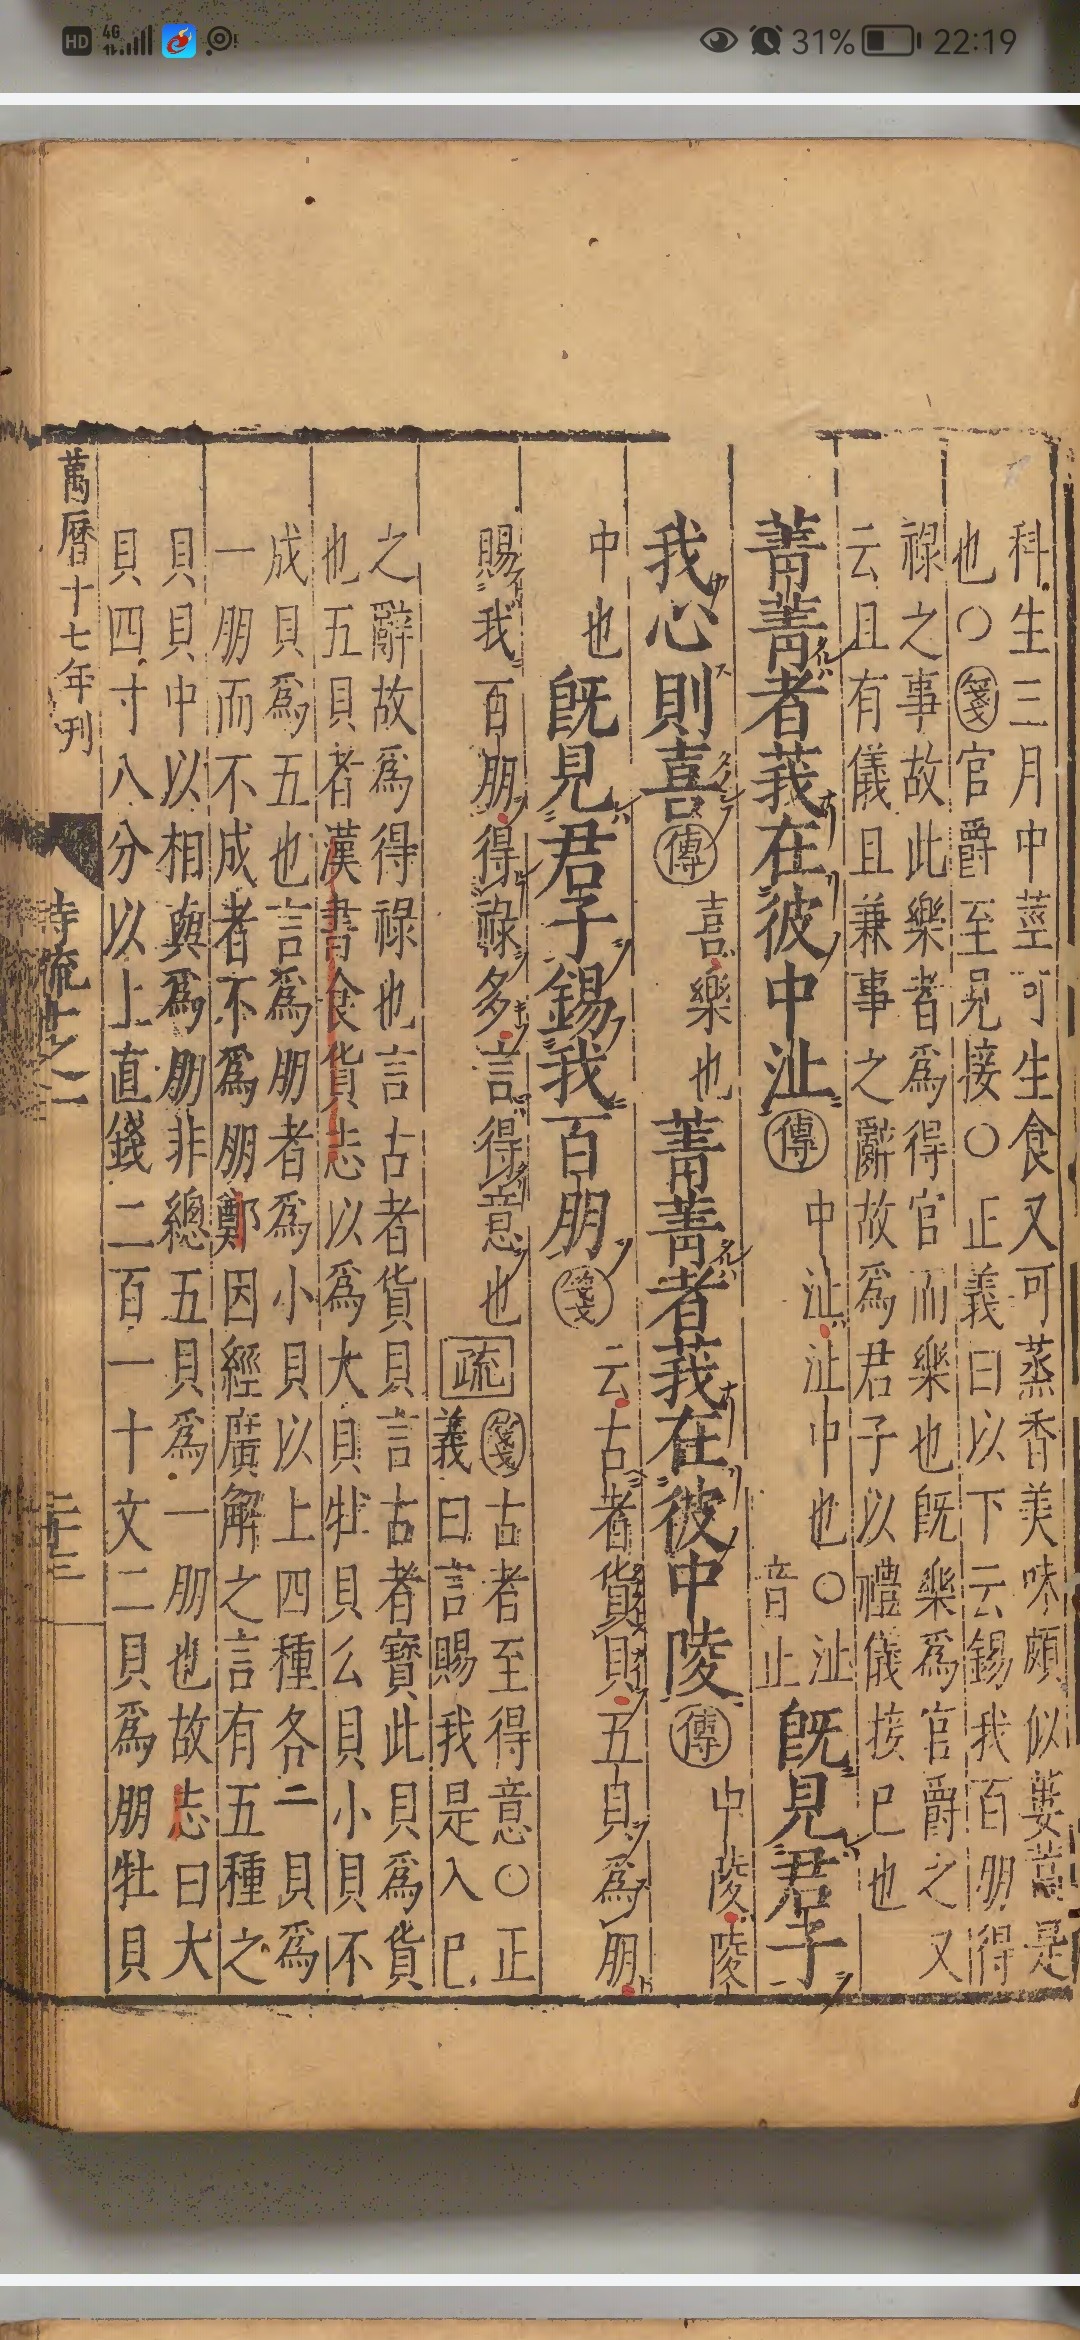 HD 4G 31% 22:19
科生三月中莖可生食又可蒸香美味頗似蔞蒿是
也○箋官爵至見接○正義曰以下云錫我百朋得
祿之事故此樂者爲得官而樂也既樂爲官爵之又
云且有儀且兼事之辭故爲君子以禮儀接巳也
菁菁者莪在彼中沚傳中沚沚中也○沚音止既見君子
我心則喜傳喜樂也菁菁者莪在彼中陵傳中陵陵
中也既見君子錫我百朋箋云古者貨貝五貝爲朋
賜我百朋得祿多言得意也疏箋古者至得意○正
義曰言賜我是入巳
之辭故爲得祿也言古者貨貝言古者寳此貝爲貨
也五貝者漢書食貨志以爲大貝牡貝么貝小貝不
成貝爲五也言爲朋者爲小貝以上四種各二貝爲
一朋而不成者不爲朋鄭因經廣解之言有五種之
貝貝中以相與爲朋非總五貝爲一朋也故志曰大
貝四寸八分以上直錢二百一十文二貝爲朋牡貝
萬曆十七年刊
詩疏十之
二十三